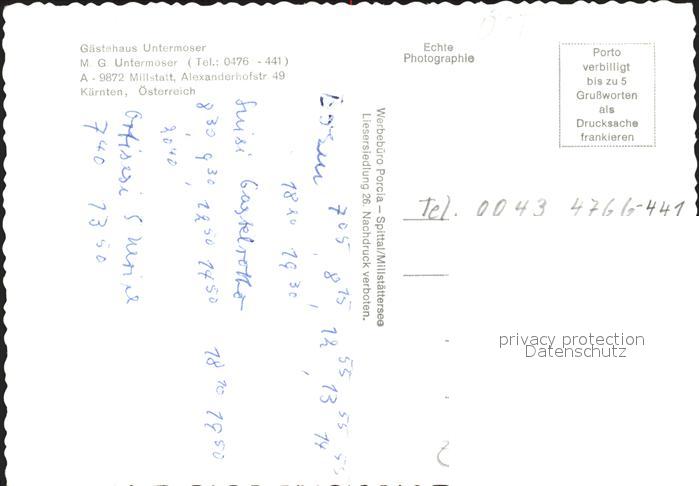 Gästehaus Untermoser
M. G. Untermoser ( Tel.: 0476 - 441 )
A - 9872 Millstatt, Alexanderhofstr. 49
Kärnten, Österreich
Echte
Photographie
Porto
verbilligt
bis zu 5
Grußworten
als
Drucksache
frankieren
Werbebüro Porcia – Spittal/Millstättersee
Liesersiedlung 26. Nachdruck verboten.
Tel. 0043 4766-441
Bozen 7 05, 8 15, 12 55 13 55 14 55
18 20 19 30
Siusi Castelrotto
8 30 9 30 12 50 17 50 18 10 19 50
Ortisei S
7 40 13 50
privacy protection
Datenschutz